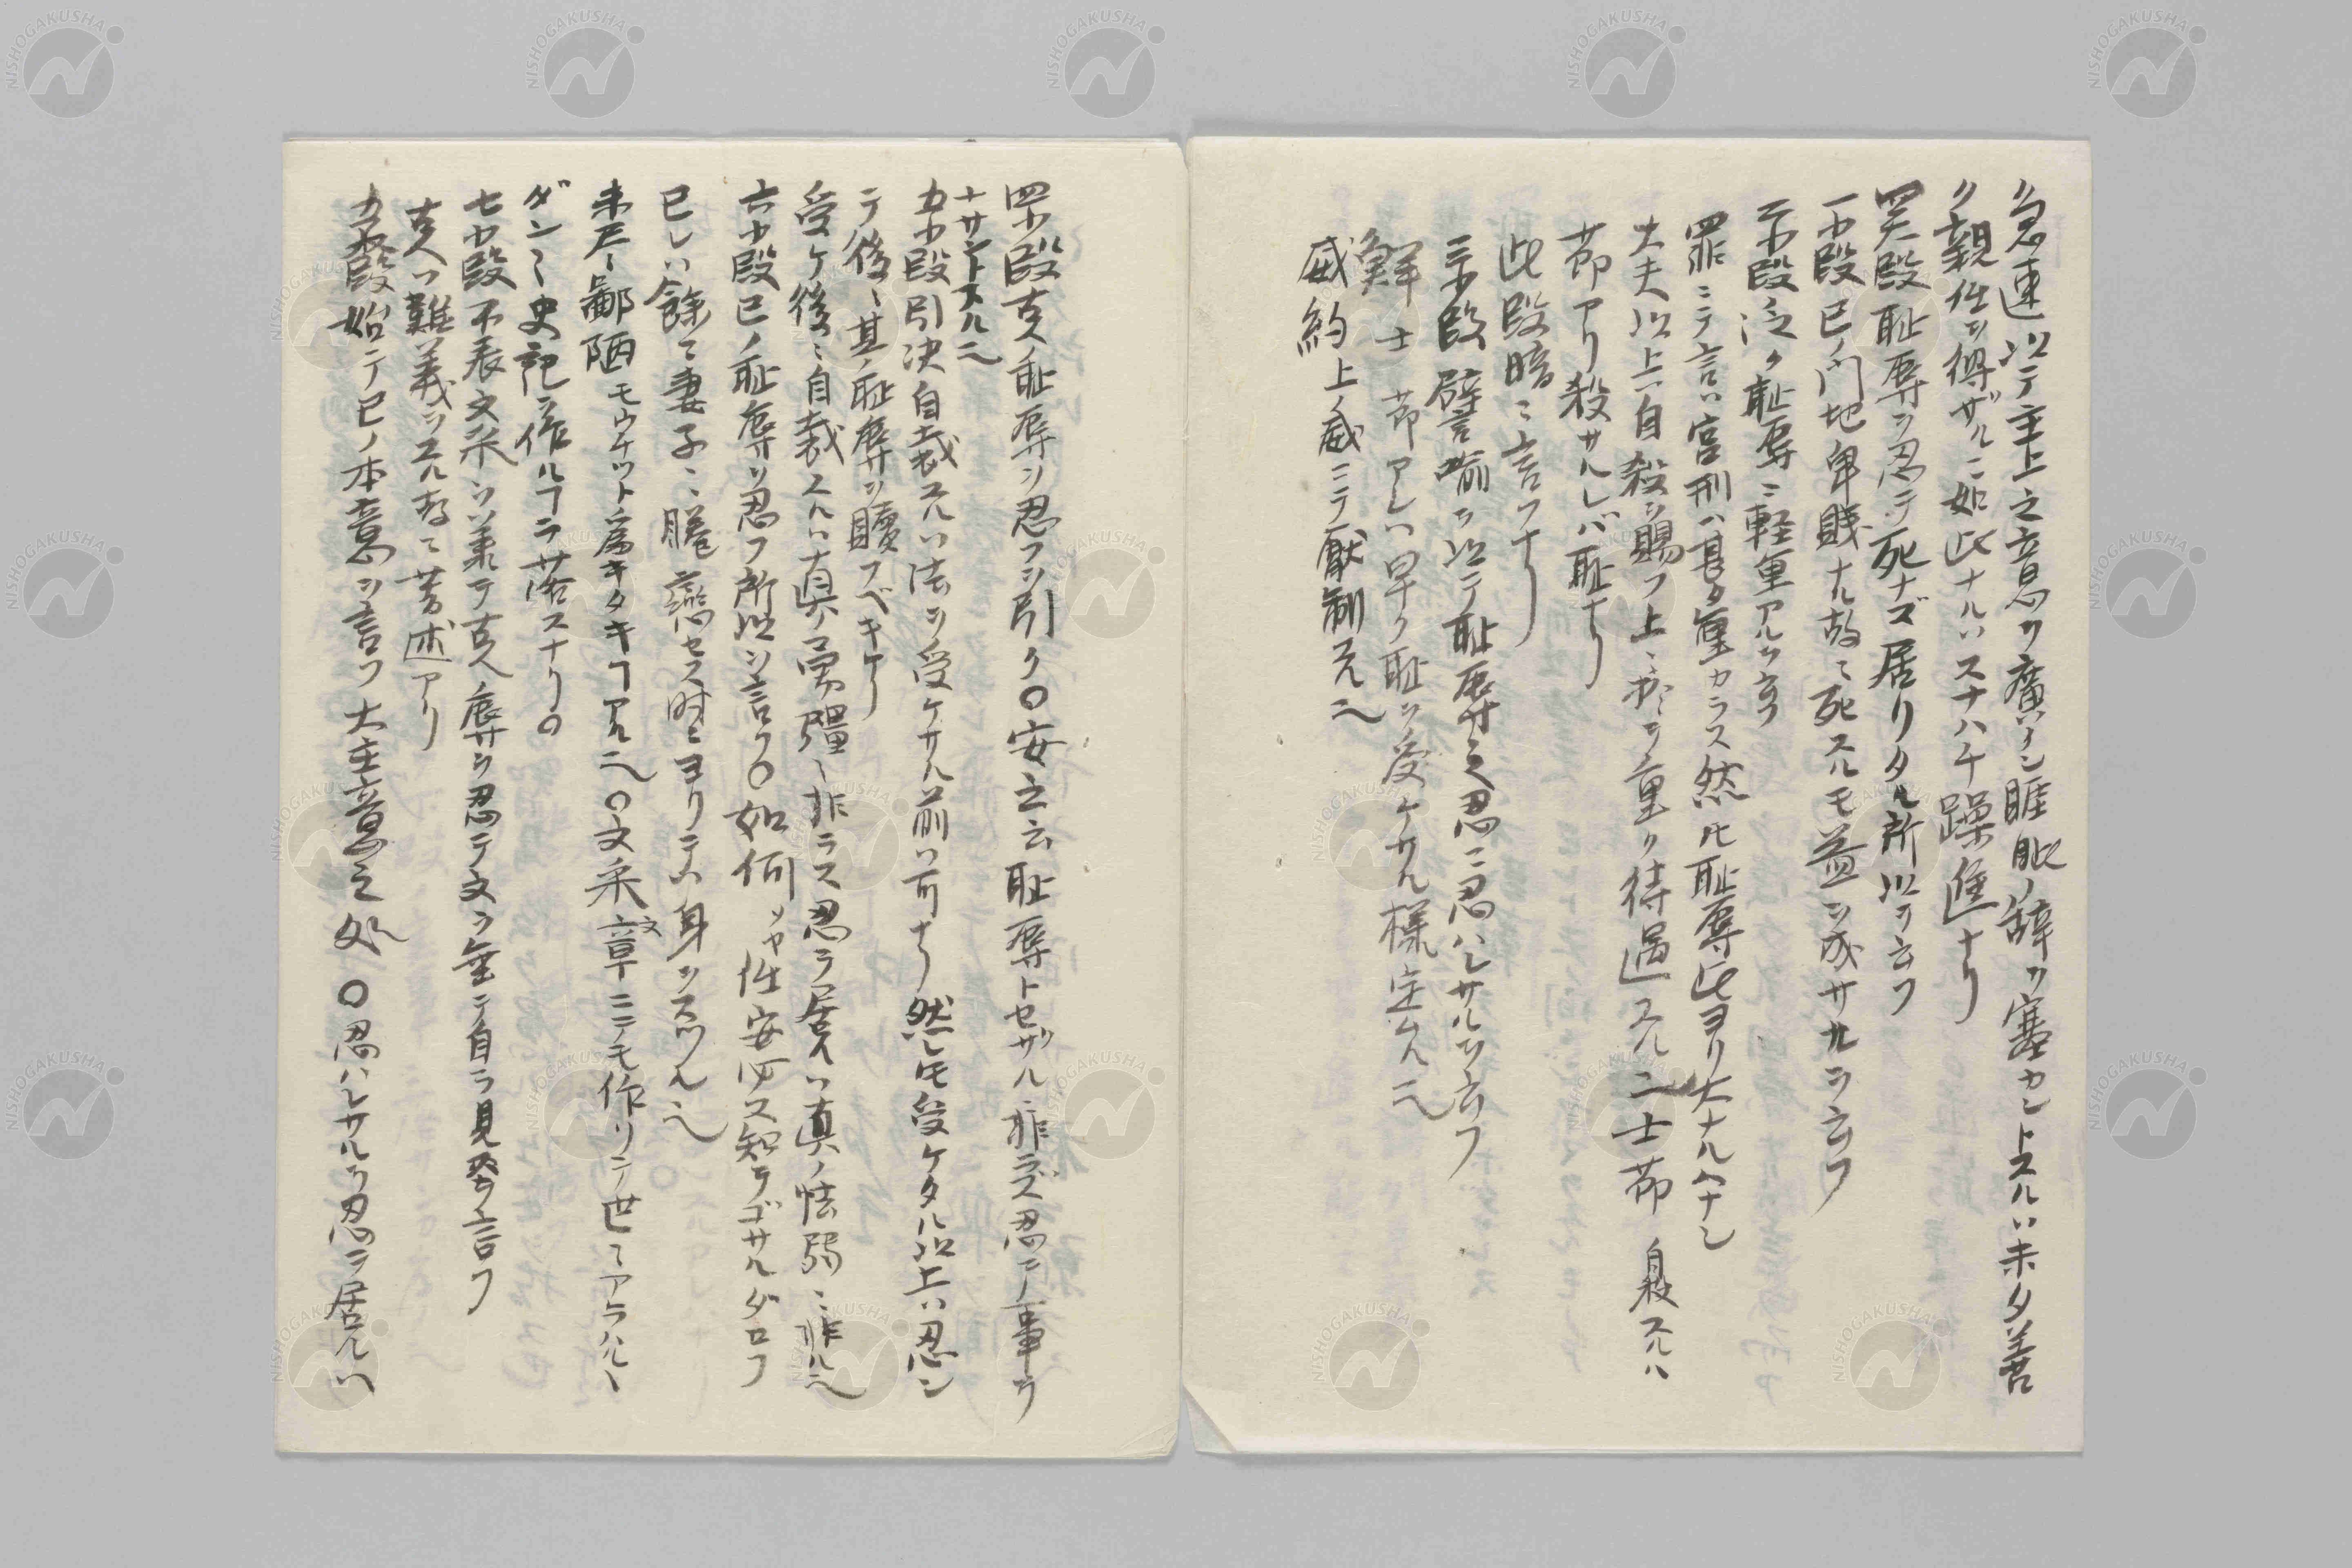 急速以テ主上之意ヲ廣メン睚眦ノ辞ヲ塞カントスルハ未タ善
ク親任ヲ得ザルニ如此ナルハスナハチ躁進ナリ
四大段恥辱ヲ忍テ死ナズ居リタル所以ヲ言フ
一小段己ノ門地卑賤ナル故ニ死スルモ益ヲ成サヾルヲ言フ
二小段泛ク恥辱ニ軽重アルヲ言フ
罪ニテ言ハ宮刑ハ甚タ重カラス然レ𪜈恥辱此ヨリ大ナルハナシ
大夫以上ハ自殺ヲ賜フ上ニ於テ重ク待遇スル也士節 自殺スルハ
節アリ殺サルレバ恥ナリ
此段暗ニ言フナリ
三小段譬喩ヲ以テ恥辱之忍ニ忍ハレサルヲ言フ
鮮 士節アレハ早ク恥ヲ受ケサル様定ムル也
威約 上ノ威ニテ厭制スル也
四小段古人恥辱ヲ忍フヲ引ク〇安立云恥辱トセザル非ズ忍ニノ事ヲ
ナサントスル也
五小段引決自裁スルハ法ヲ受ケサル前ハ可ナリ然レ𪜈受ケタル以上ハ忍ン
テ後ニ其ノ恥辱ヲ贖フベキナリ
受ケ後ニ自裁スルハ真ノ勇彊ニ非ラス忍ラ居ルハ真ノ怯弱ニ非ル也
六小段己ノ恥辱ヲ忍フ所以ヲ言フ〇如何ソヤ性安必ス知ラゴザルダロフ
已レハ餘マ妻子ニ腃戀セス時ニヨリテハ身ヲスツル也
未尽 鄙陋モウケット為キタキヿアル也〇文采 文章ニニモ作リテ世ニアラハル
ダンニ史記ヲ作ルヿヲ落スナリ〇
七小段不表文采ヲ兼テ古人辱ヲ忍テ文ヲ垂テ自ラ見発ヲ言フ
古人ハ難義ヲスル故ニ著述アリ
五大段始テ己ノ本意ヲ言フ大主意之処 〇忍ハレサルヲ忍ヲ居ルハ